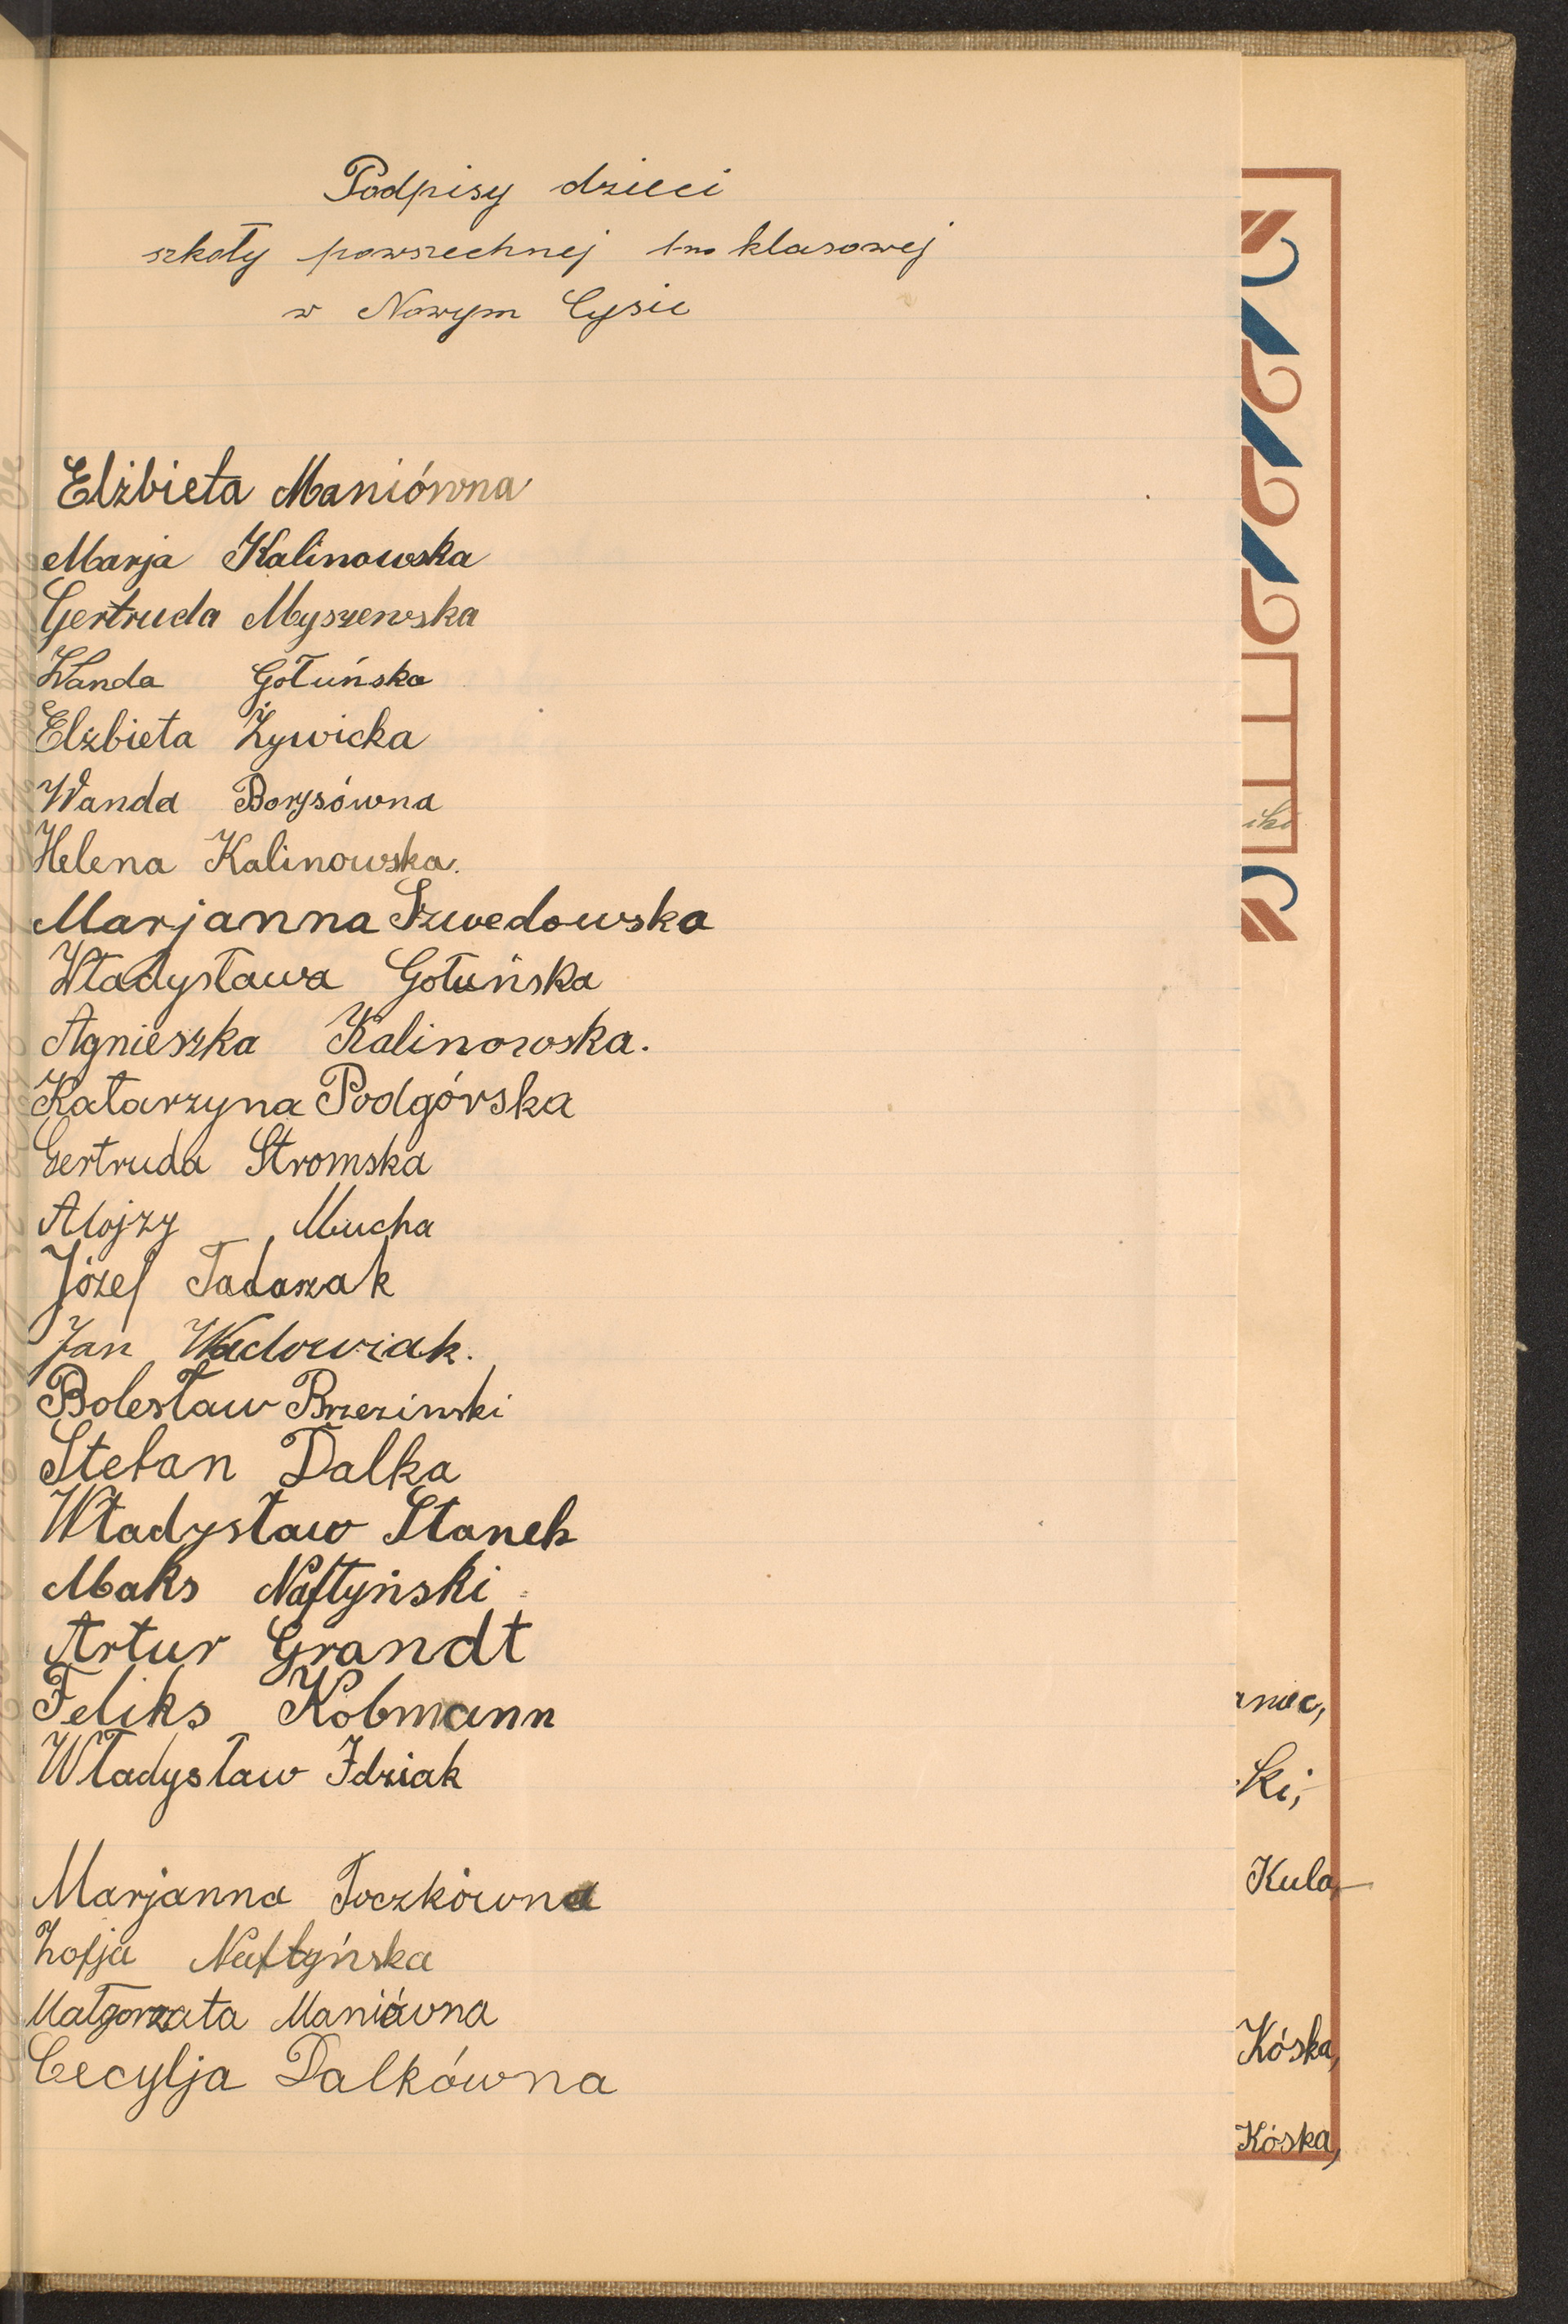 Podpisy dzieci
szkoły powszechnej 1-no klasowej
w Nowym Cysie
Elżbieta Maniówna
Marja Kalinowska
Gertruda Myszewska
Wanda Gołuńska
Elżbieta Żywicka
Wanda Borysówna
Helena Kalinowska.
Marjanna Szwedowska
Władysława Gołuńska
Agnieszka Kalinowska.
Katarzyna Podgórska
Gertruda Stromska
Alojzy Mucha
Józef Tadaszak
Jan Wdowiak.
Bolesław Brzezinski
Stefan Dalka
Władysław Stanek
Maks Naftyński
Artur Grandt
Feliks Kobmann
Władysław Idziak
Marjanna Toczkówna
Zofja Naftyńska
Małgorzata Maniówna
Cecylja Dalkówna
ski
aniec,
ki,
Kula,
Kóska,
Kóska,